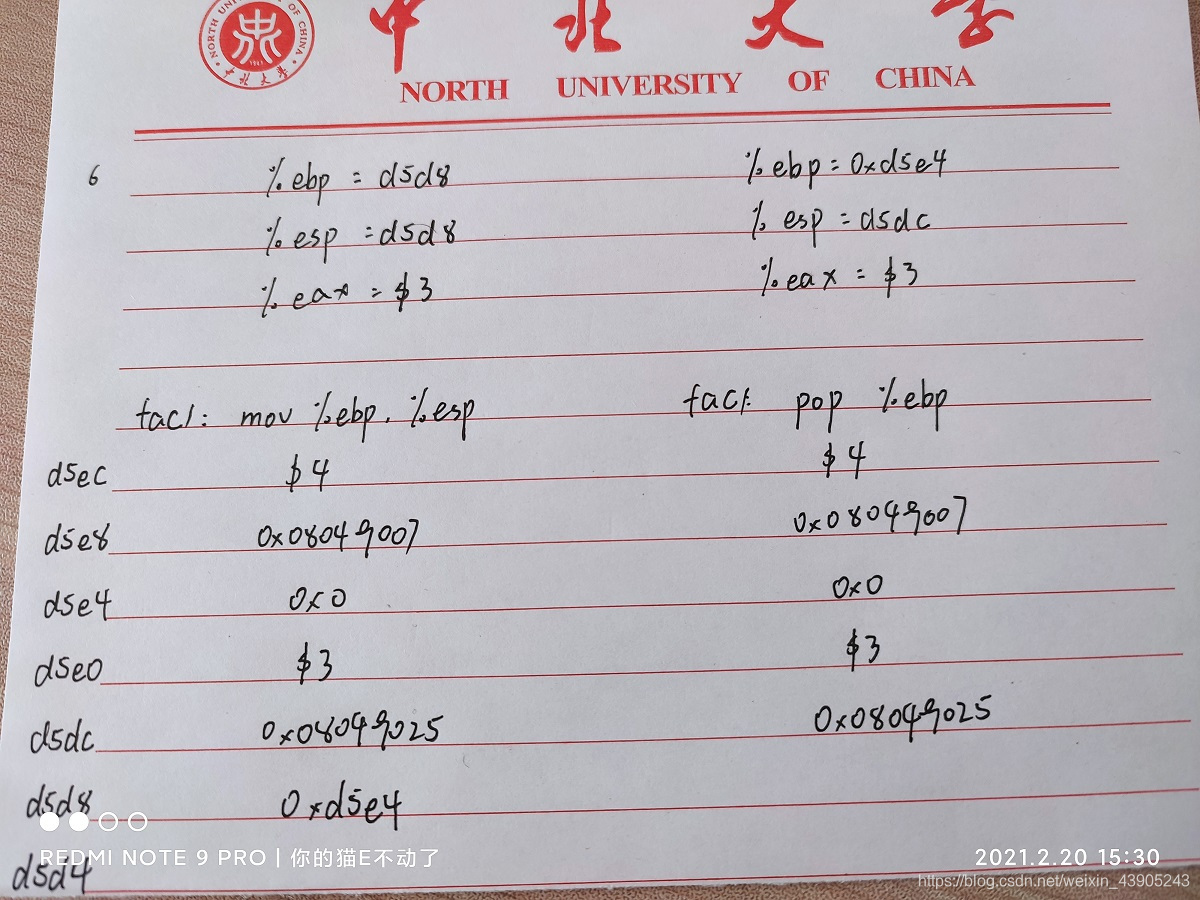 NORTH UNIVERSITY OF CHINA
1941
中北大学
中北大学
NORTH UNIVERSITY OF CHINA
6 %ebp = d5d8 %ebp = 0xd5e4
%esp = d5d8 %esp = d5dc
%eax = $3 %eax = $3
fac1: mov %ebp, %esp fac1: pop %ebp
d5ec $4 $4
d5e8 0x08049007 0x08049007
d5e4 0x0 0x0
d5e0 $3 $3
d5dc 0x08049025 0x08049025
d5d8 0xd5e4
d5d4
REDMI NOTE 9 PRO | 你的猫E不动了 2021.2.20 15:30
https://blog.csdn.net/weixin_43905243